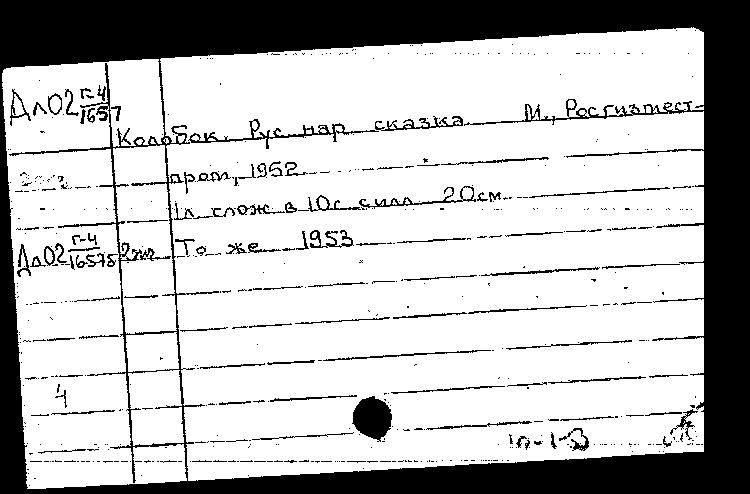 Дл02 г-4/1657
Колобок. Рус нар сказка М., Росгизмест-
пром, 1952
1л. слож в 10с с илл 20см
Дл02 г-4/16575 2эк То же 1953
4
10-1-3